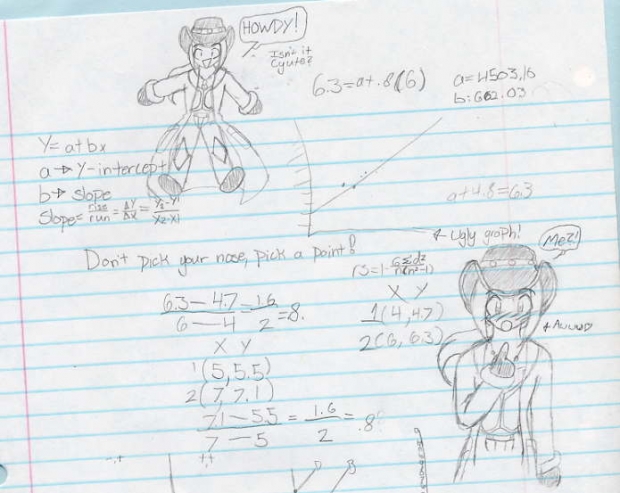 HOWDY!
Isn't it
Cyute?
6.3=a+.8(6)
a=4503.16
b=602.03
Y=a+bx
a→Y-intercept
b→slope
Slope=rise/run=ΔY/ΔX=Y2-Y1/X2-X1
a+4.8=6.3
←Ugly graph!
Me?!
Don't pick your nose, pick a point!
rs=1-6Σd²/n(n²-1)
X Y
1(4,4.7)
2(6,6.3)
←Awwww
6.3-4.7/6-4=1.6/2=.8
X Y
1(5,5.5)
2(7,7.1)
7.1-5.5/7-5=1.6/2=.8
-,+
+,+